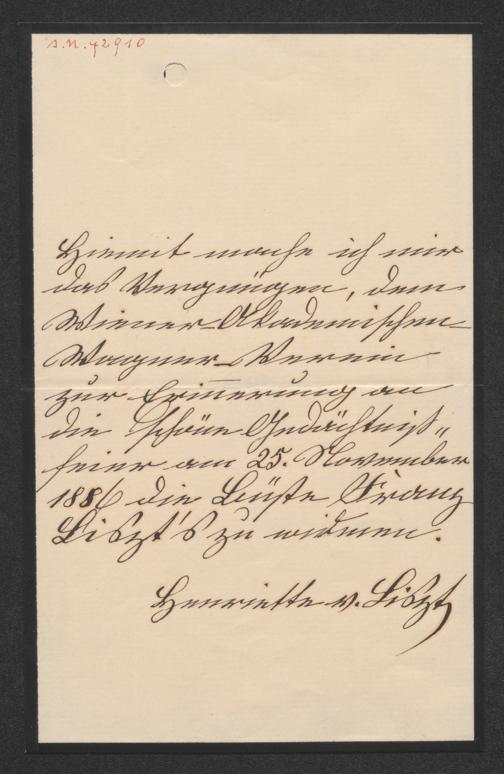 s.n. 42910
Hiemit mache ich mir
das Vergnügen, dem
Wiener Akademischen
Wagner-Verein
zur Erinnerung an
die schöne Gedächtniß„
feier am 25. November
1886 die Büste Franz
Liszt's zu widmen.
Henriette v. Liszt